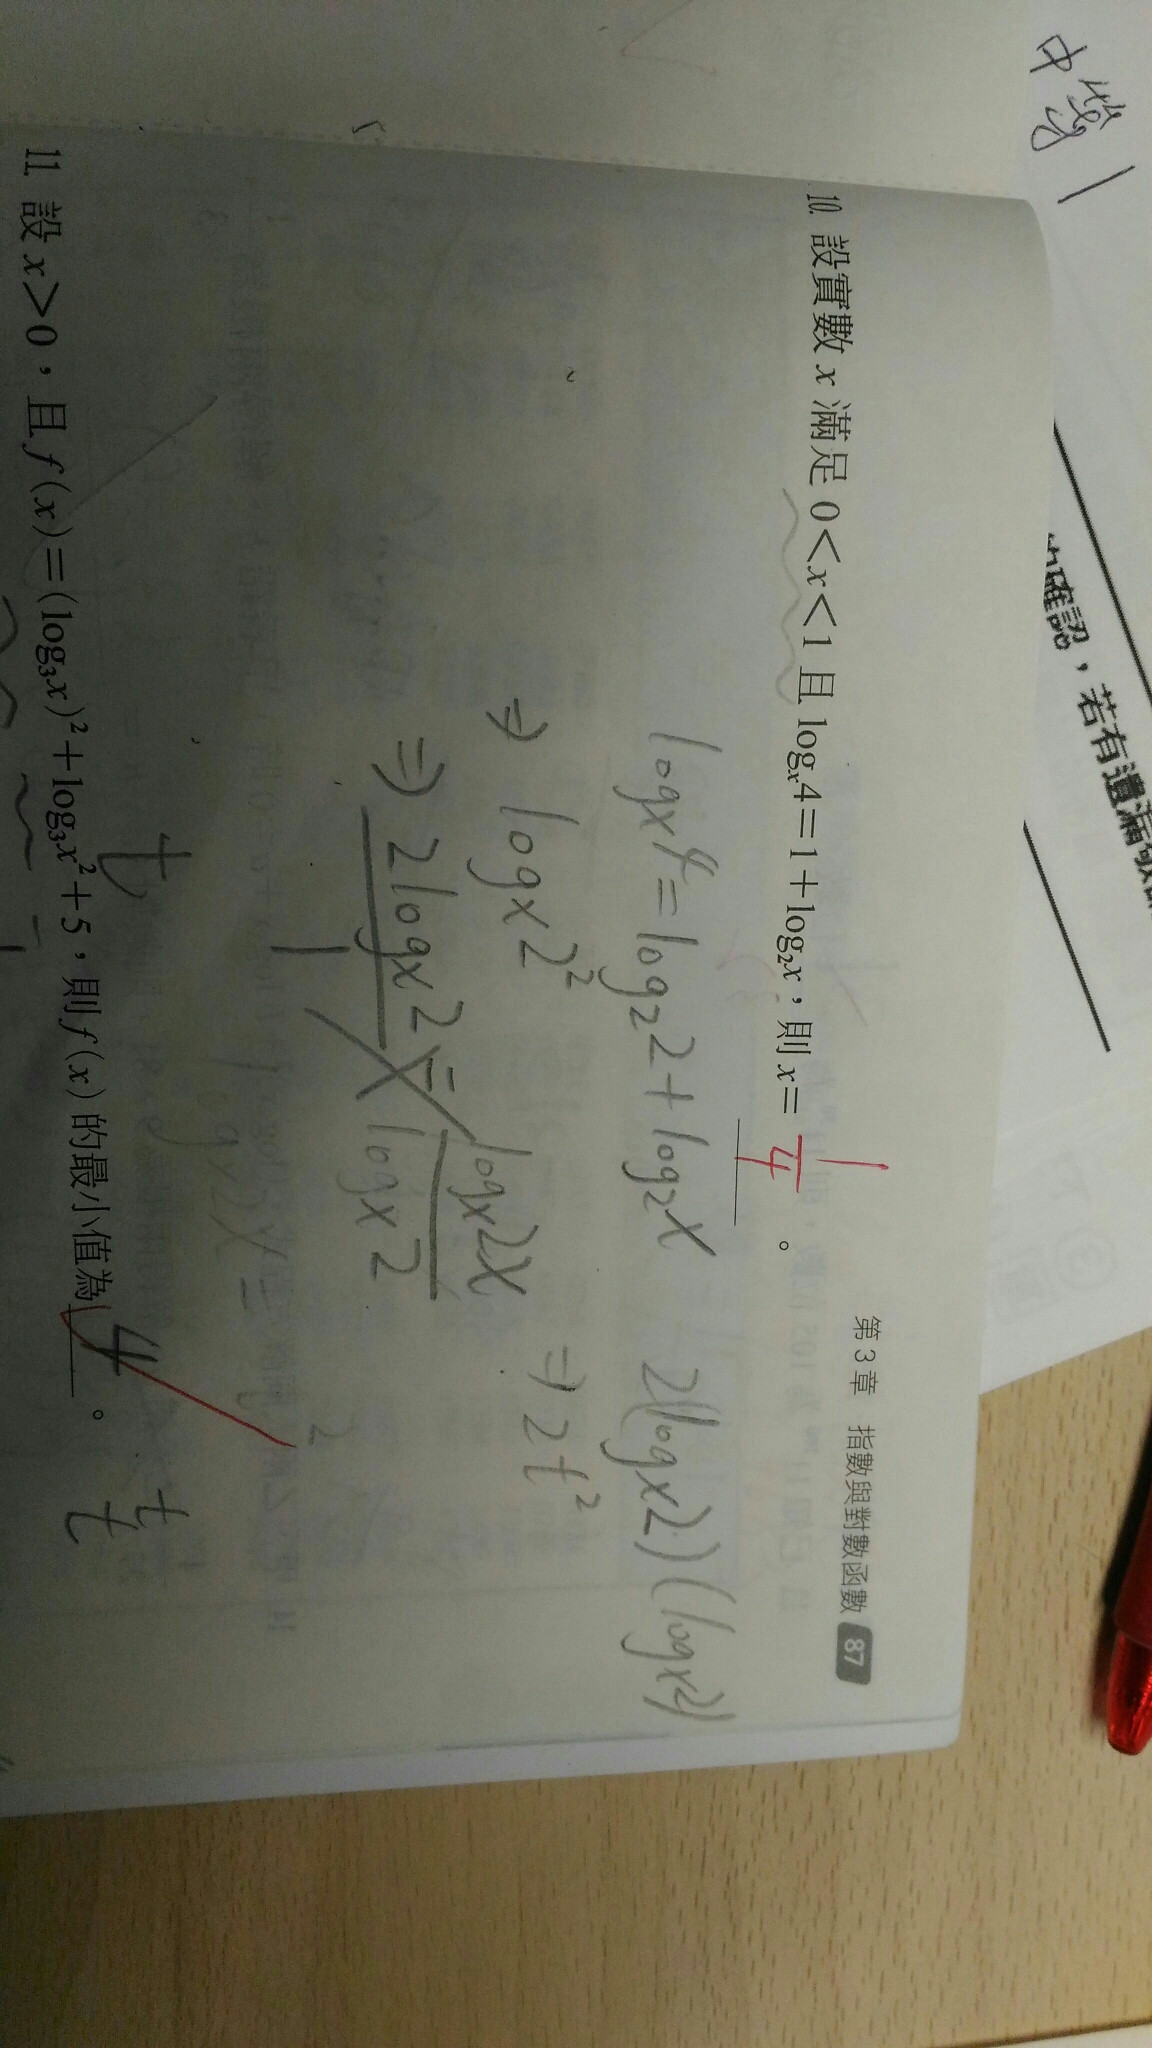 中等1
的確認,若有遺漏敬請
第3章 指數與對數函數 87
10. 設實數 x 滿足 0<x<1 且 logₓ4=1+log₂x,則 x= 1/4 。
logₓ4=log₂2+log₂x
2(logₓ2)(logₓ2)
⇒ logₓ2²
⇒ 2t²
⇒ 2logₓ2 = logₓ2x / logₓ2
1
11. 設 x>0,且 f(x)=(log₃x)²+log₃x²+5,則 f(x) 的最小值為 4 。
t
t
t